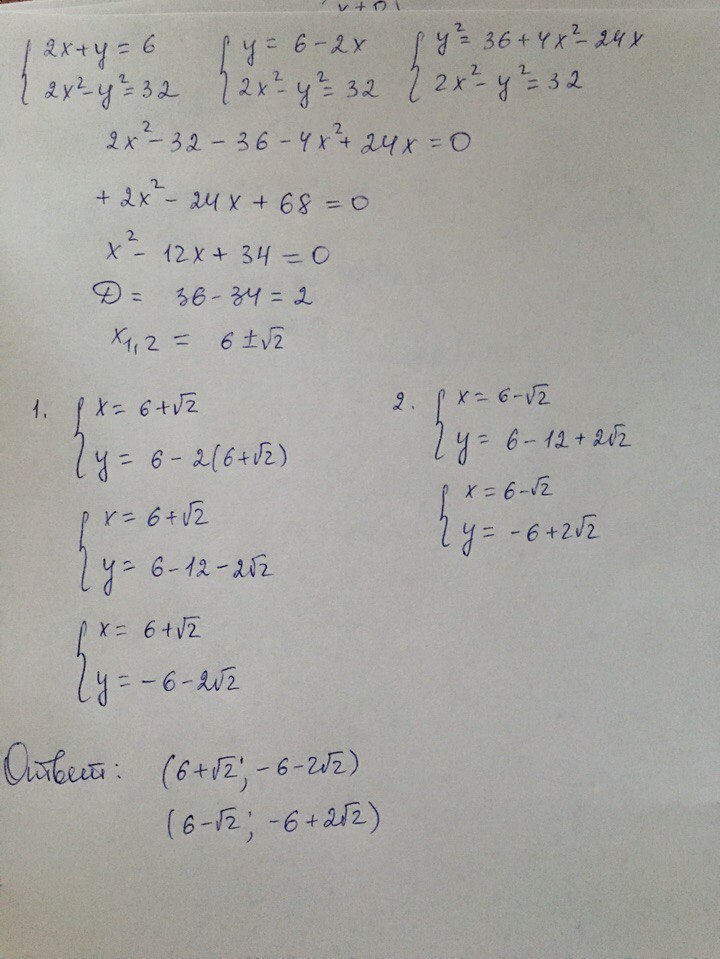 2x+y=6 y=6-2x y²=36+4x²-24x
2x²-y²=32 2x²-y²=32 2x²-y²=32
2x²-32-36-4x²+24x=0
+2x²-24x+68=0
x²-12x+34=0
D=36-34=2
x₁,₂=6±√2
1. x=6+√2
y=6-2(6+√2)
x=6+√2
y=6-12-2√2
x=6+√2
y=-6-2√2
2. x=6-√2
y=6-12+2√2
x=6-√2
y=-6+2√2
Ответ: (6+√2; -6-2√2)
(6-√2; -6+2√2)